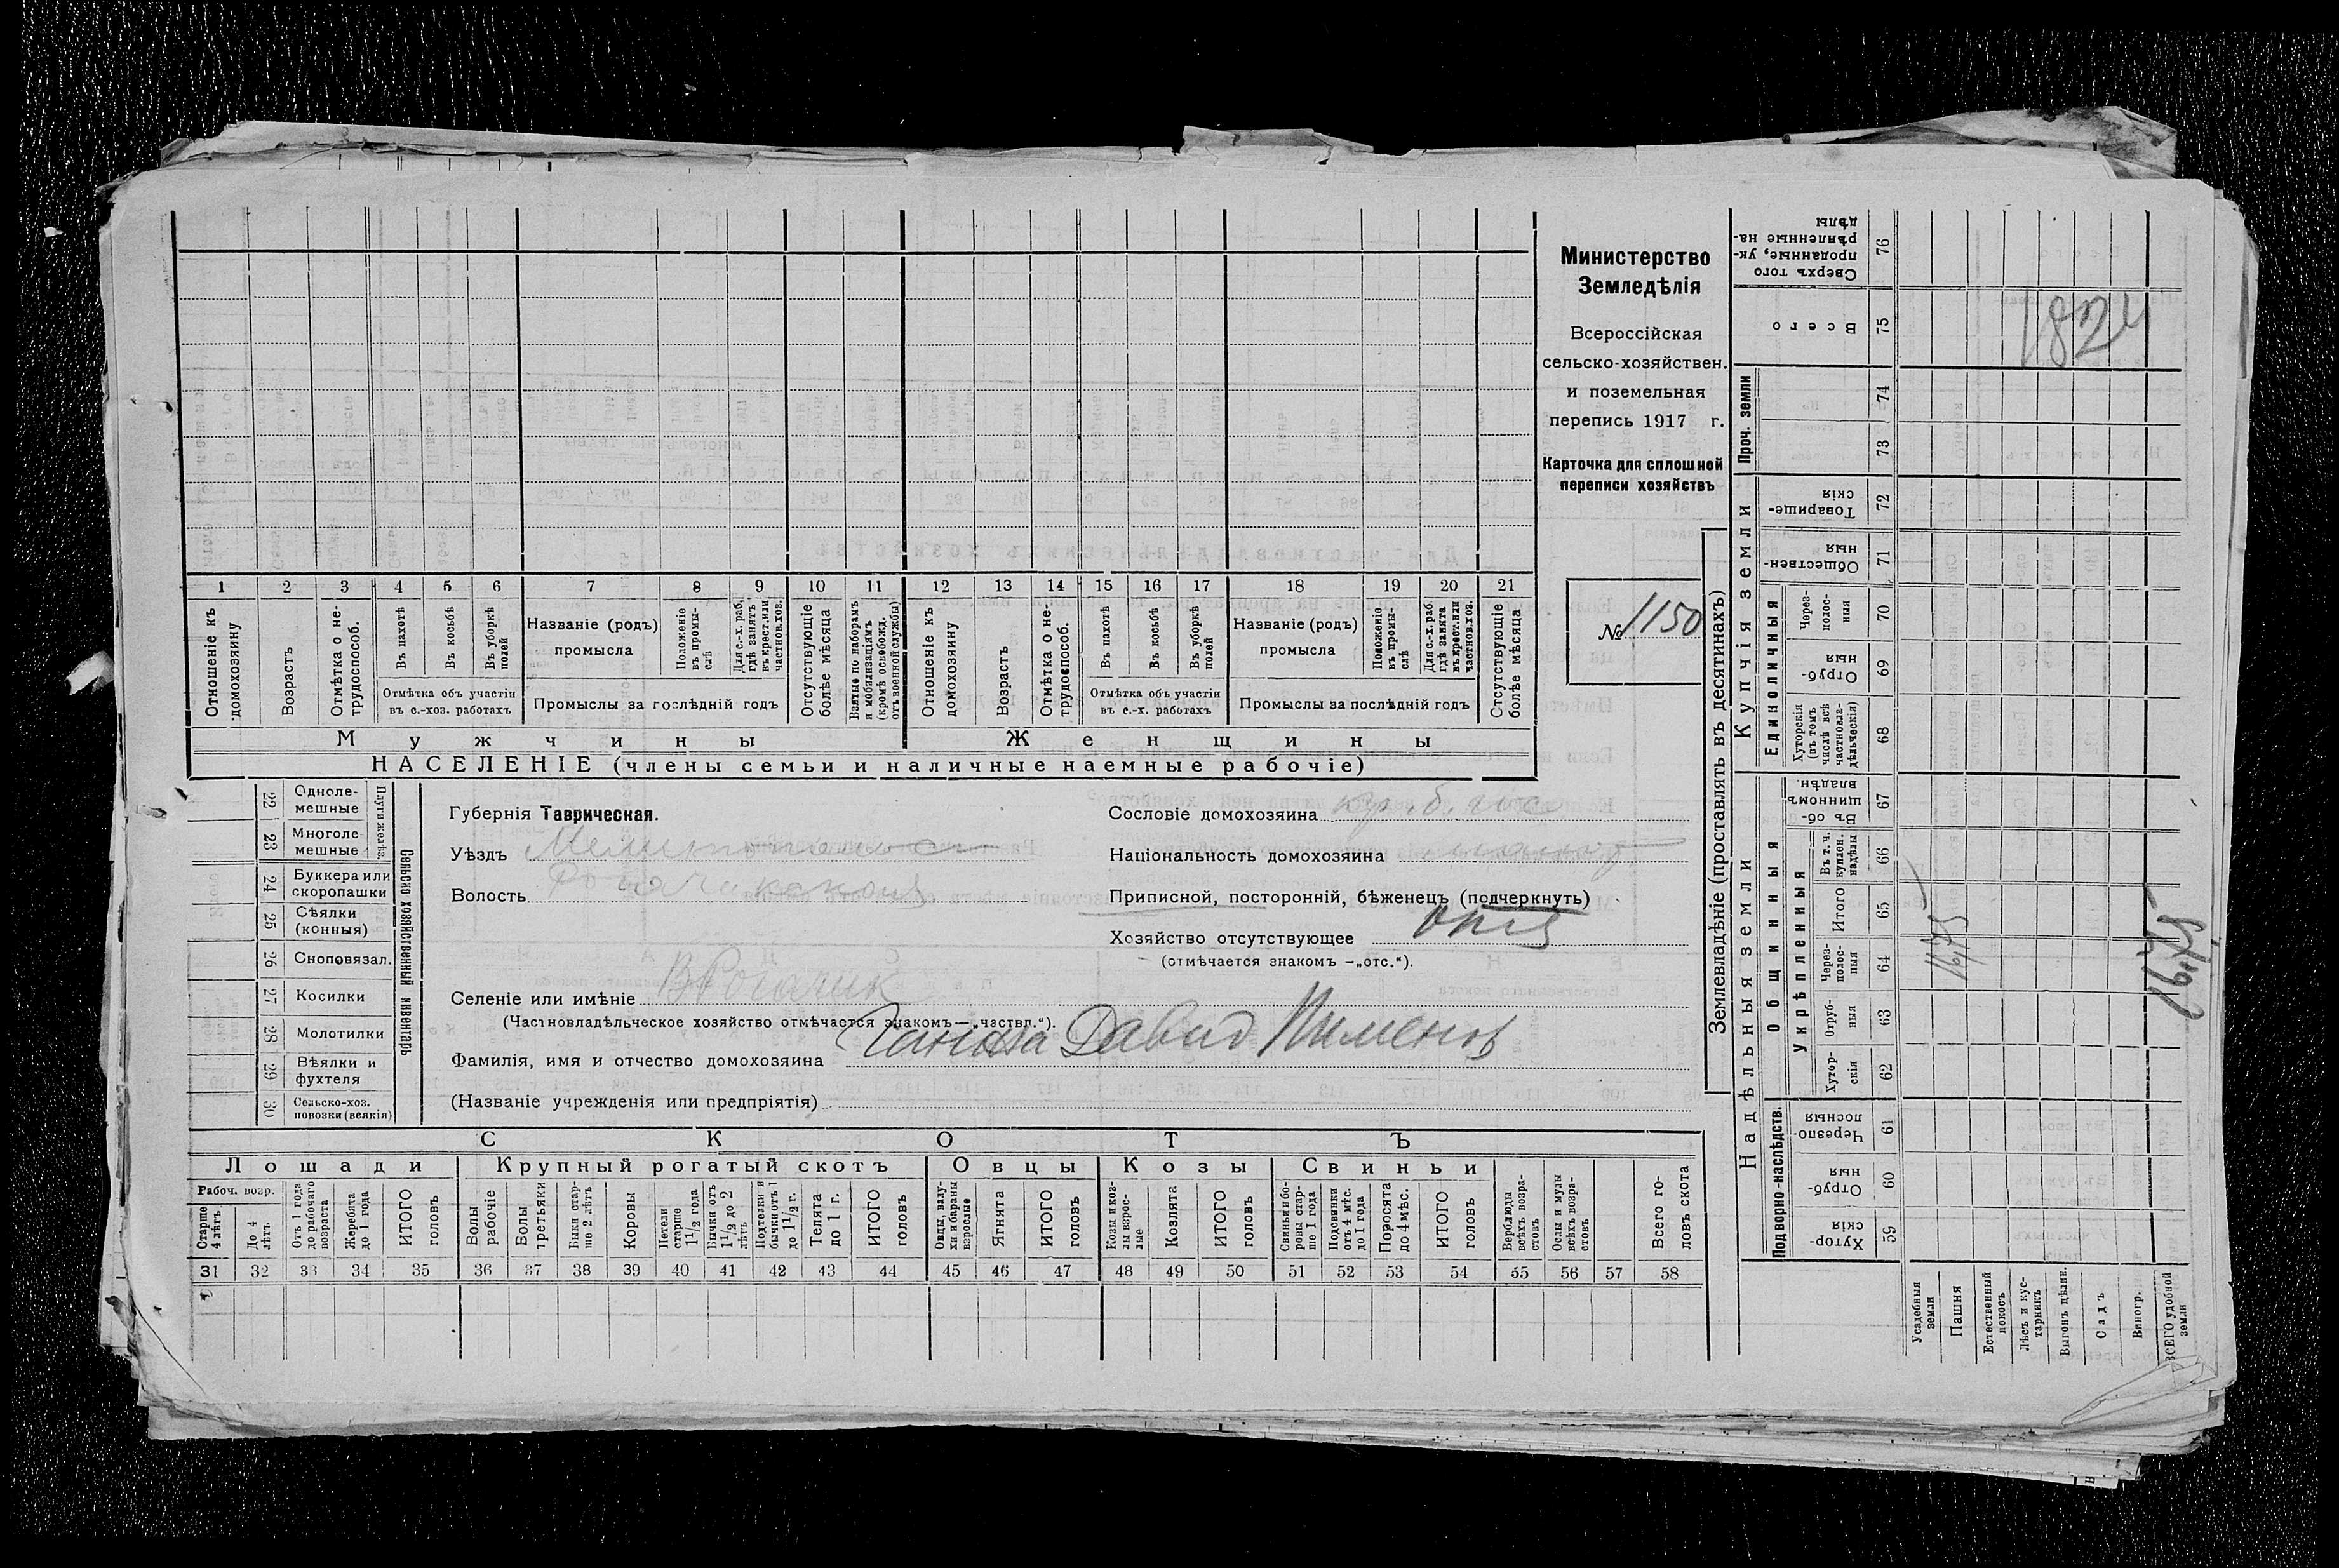 Министерство
Земледѣлія
Всероссійская
сельско-хозяйствен.
и поземельная
перепись 1917 г.
Карточка для сплошной
переписи хозяйствъ
№ 1150
1 2 3 4 5 6 7 8 9 10 11 12 13 14 15 16 17 18 19 20 21
Отношеніе къ домохозяину
Возрастъ
Отмѣтка о не-трудоспособ.
Въ пахотѣ
Въ косьбѣ
Въ уборкѣ полей
Отмѣтка объ участіи
въ с.-хоз. работахъ
Названіе (родъ)
промысла
Положеніе въ промы-слѣ
Для с.-х. раб. гдѣ занятъ въ крест. или частнов. хоз.
Промыслы за послѣдній годъ
Отсутствующіе болѣе мѣсяца
Взятые по наборамъ и мобилизаціямъ (кромѣ освобожд. отъ военной службы)
Отношеніе къ домохозяину
Возрастъ
Отмѣтка о не-трудоспособ.
Въ пахотѣ
Въ косьбѣ
Въ уборкѣ полей
Отмѣтка объ участіи
въ с.-х. работахъ
Названіе (родъ)
промысла
Положеніе въ промы-слѣ
Для с.-х. раб. гдѣ занята въ крест. или частнов. хоз.
Промыслы за послѣдній годъ
Отсутствующіе болѣе мѣсяца
Мужчины Женщины
НАСЕЛЕНІЕ (члены семьи и наличные наемные рабочіе)
22 Одноле-мешные
23 Многоле-мешные
Плуги желѣз.
24 Буккера или скоропашки
25 Сѣялки (конныя)
26 Сноповязал.
27 Косилки
28 Молотилки
29 Вѣялки и фухтеля
30 Сельско-хоз. повозки (всякія)
Сельско хозяйственный инвентарь
Губернія Таврическая.
Уѣздъ
Волость
Селеніе или имѣніе В Рогачик
(Частновладѣльческое хозяйство отмѣчается знакомъ—„частвл.“).
Фамилія, имя и отчество домохозяина Давид Пименов
(Названіе учрежденія или предпріятія)
Сословіе домохозяина
Національность домохозяина
Приписной, посторонній, бѣженецъ (подчеркнуть)
Хозяйство отсутствующее
(отмѣчается знакомъ —„отс.“).
СКОТЪ
Лошади Крупный рогатый скотъ Овцы Козы Свиньи
Рабоч. возр.
Старше 4 лѣтъ
До 4 лѣтъ
Отъ 1 года до рабочаго возраста
Жеребята до 1 года
ИТОГО головъ
Волы рабочіе
Волы третьяки
Быки стар-ше 2 лѣтъ
Коровы
Нетели старше 1 1/2 года
Бычки отъ 1 1/2 до 2 лѣтъ
Подтелки и бычки отъ 1 до 1 1/2 г.
Телята до 1 г.
ИТОГО головъ
Овцы, валу-хи и бараны взрослые
Ягнята
ИТОГО головъ
Козы и коз-лы взрос-лые
Козлята
ИТОГО головъ
Свиньи и бо-ровы стар-ше 1 года
Подсвинки отъ 4 мѣс. до 1 года
Поросята до 4 мѣс.
ИТОГО головъ
Верблюды всѣхъ возра-стовъ
Ослы и мулы всѣхъ возра-стовъ
Всего го-ловъ скота
31 32 33 34 35 36 37 38 39 40 41 42 43 44 45 46 47 48 49 50 51 52 53 54 55 56 57 58
Землевладѣніе (проставлять въ десятинахъ)
Надѣльныя земли
Купчія земли
Проч. земли
Подворно-наслѣдств.
Общинныя
Укрѣпленныя
Единоличныя
Хутор-скія 59
Отруб-ныя 60
Черезпо-лосныя 61
Хутор-скія 62
Отруб-ныя 63
Через-полос-ныя 64
Итого 65
Въ т. ч. куплен. надѣлы 66
Въ об-щинномъ владѣн. 67
Хуторскія (въ томъ числѣ всѣ частновла-дѣльческія) 68
Отруб-ныя 69
Через-полос-ныя 70
Обществен-ныя 71
Товарище-скія 72
73
74
Всего 75
Сверхъ того проданные, ук-рѣпленные на-дѣлы 76
Усадебныя земли
Пашня
Естественный покосъ
Лѣсъ и кус-тарникъ
Выгонъ цѣлик.
Садъ
Виногр.
ВСЕГО удобной земли
16,75
16,75